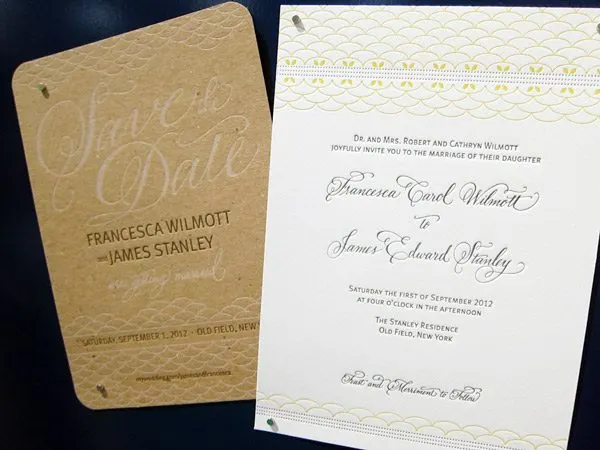 Save the
Date
FRANCESCA WILMOTT
AND JAMES STANLEY
are getting married
SATURDAY, SEPTEMBER 1, 2012 · OLD FIELD, NEW
Dr. and Mrs. Robert and Cathryn Wilmott
joyfully invite you to the marriage of their daughter
Francesca Carol Wilmott
to
James Edward Stanley
Saturday the first of September 2012
at four o'clock in the afternoon
The Stanley Residence
Old Field, New York
Feast and Merriment to Follow